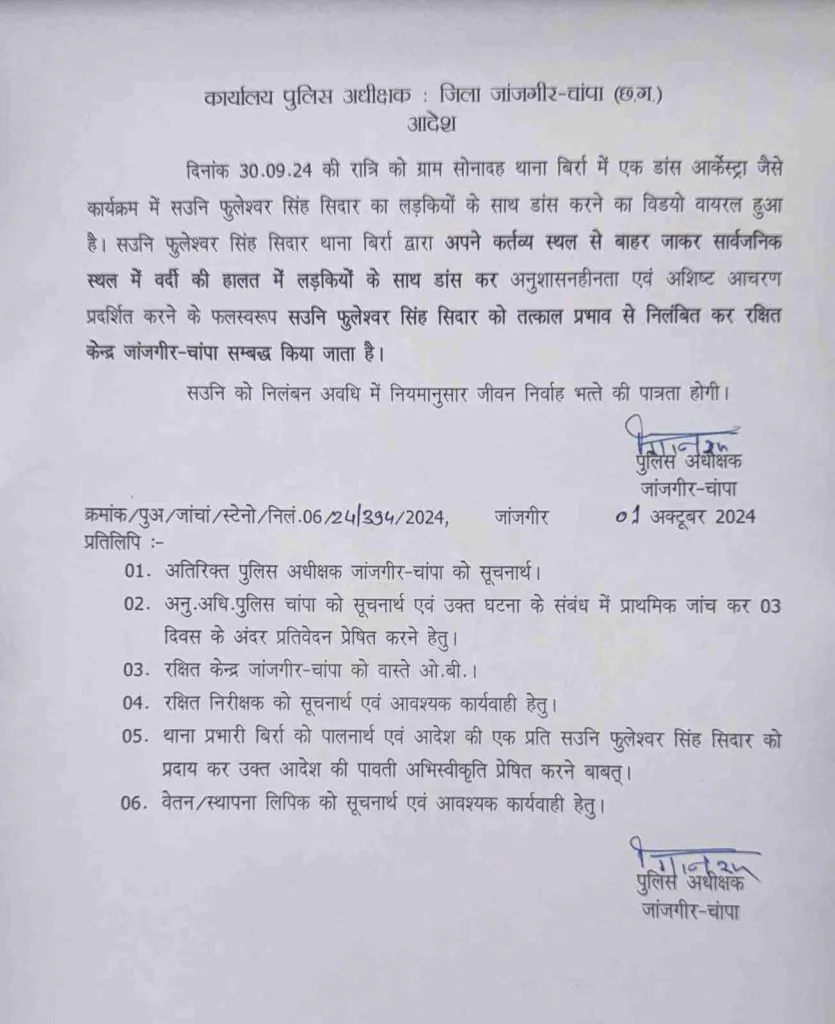 कार्यालय पुलिस अधीक्षक : जिला जांजगीर-चांपा (छ.ग.)
आदेश
दिनांक 30.09.24 की रात्रि को ग्राम सोनादह थाना बिर्रा में एक डांस आर्केस्ट्रा जैसे
कार्यक्रम में सउनि फुलेश्वर सिंह सिदार का लड़कियों के साथ डांस करने का विडयो वायरल हुआ
है। सउनि फुलेश्वर सिंह सिदार थाना बिर्रा द्वारा अपने कर्तव्य स्थल से बाहर जाकर सार्वजनिक
स्थल में वर्दी की हालत में लड़कियों के साथ डांस कर अनुशासनहीनता एवं अशिष्ट आचरण
प्रदर्शित करने के फलस्वरूप सउनि फुलेश्वर सिंह सिदार को तत्काल प्रभाव से निलंबित कर रक्षित
केन्द्र जांजगीर-चांपा सम्बद्ध किया जाता है।
सउनि को निलंबन अवधि में नियमानुसार जीवन निर्वाह भत्ते की पात्रता होगी।
पुलिस अधीक्षक
जांजगीर-चांपा
क्रमांक/पुअ/जांचां/स्टेनो/निलं.06/24/394/2024, जांजगीर 01 अक्टूबर 2024
प्रतिलिपि :-
01. अतिरिक्त पुलिस अधीक्षक जांजगीर-चांपा को सूचनार्थ।
02. अनु.अधि.पुलिस चांपा को सूचनार्थ एवं उक्त घटना के संबंध में प्राथमिक जांच कर 03
दिवस के अंदर प्रतिवेदन प्रेषित करने हेतु।
03. रक्षित केन्द्र जांजगीर-चांपा को वास्ते ओ.बी.।
04. रक्षित निरीक्षक को सूचनार्थ एवं आवश्यक कार्यवाही हेतु।
05. थाना प्रभारी बिर्रा को पालनार्थ एवं आदेश की एक प्रति सउनि फुलेश्वर सिंह सिदार को
प्रदाय कर उक्त आदेश की पावती अभिस्वीकृति प्रेषित करने बाबत्।
06. वेतन/स्थापना लिपिक को सूचनार्थ एवं आवश्यक कार्यवाही हेतु।
पुलिस अधीक्षक
जांजगीर-चांपा